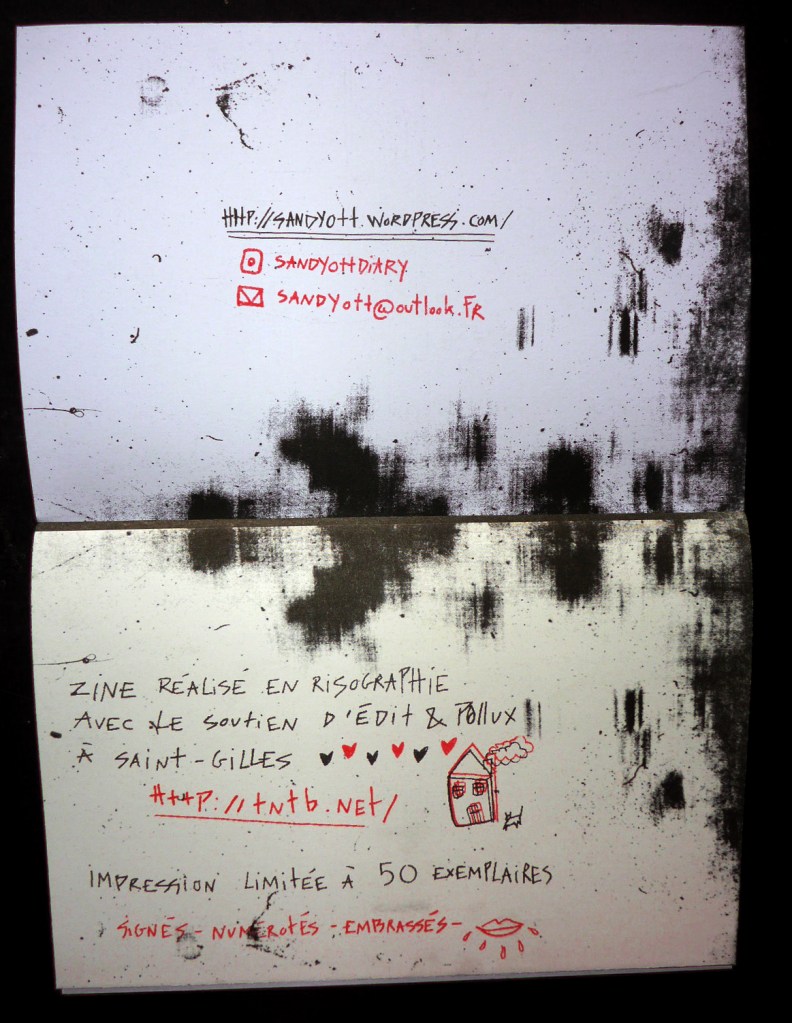 HTTP://SANDYOTT.WORDPRESS.COM/
SANDYOTTDIARY
SANDYOTT@OUTLOOK.FR
ZINE RÉALISÉ EN RISOGRAPHIE
AVEC LE SOUTIEN D'ÉDIT & POLLUX
À SAINT-GILLES
HTTP://TNTB.NET/
IMPRESSION LIMITÉE À 50 EXEMPLAIRES
SIGNÉS - NUMÉROTÉS - EMBRASSÉS -